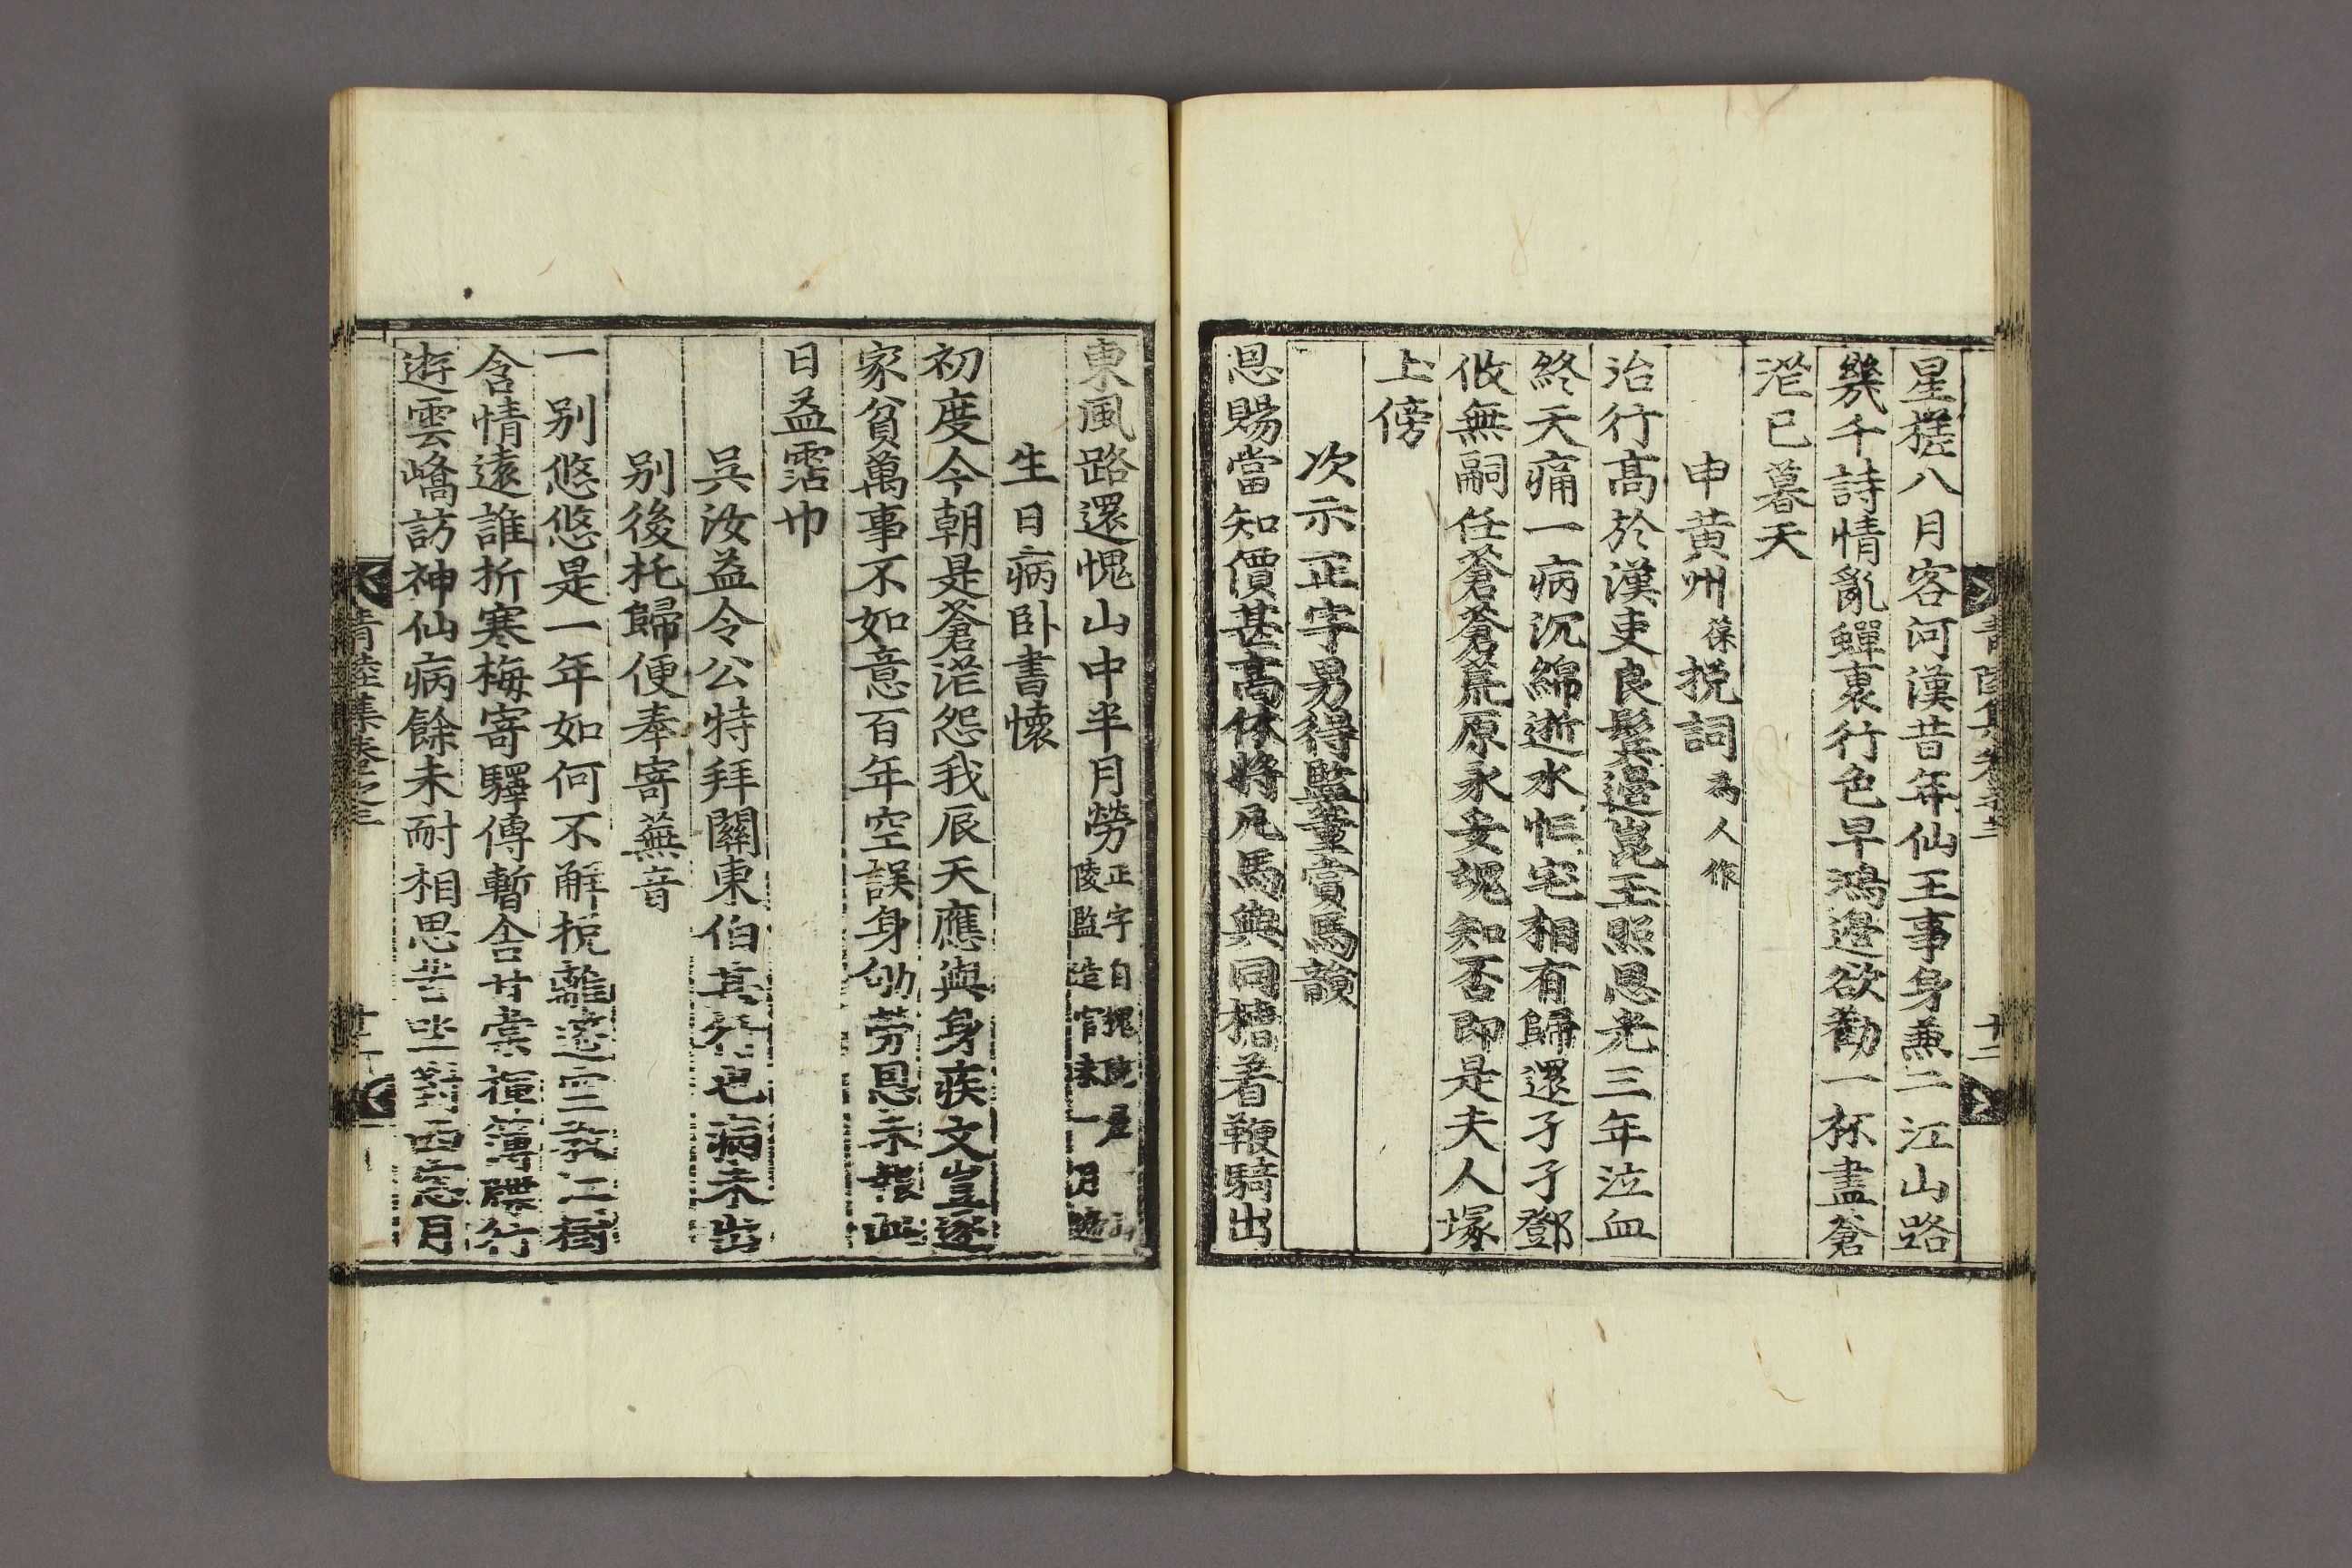 星槎八月客河漢昔年仙王事身兼二江山路
幾千詩情亂蟬裏行色早鴻邊欲勸一杯盡蒼
茫已暮天
申黃州葆挽詞爲人作
治行高於漢吏良鬂邊崑玉照恩光三年泣血
終天痛一病沉綿逝水忙宅相有歸還孑孑鄧
攸無嗣任蒼蒼荒原永妥魂知否即是夫人塚
上傍
次示正字男得監董賞馬韻
恩賜當知價甚高休將凡馬與同槽着鞭騎出
東風路還愧山中半月勞正字自 陵監造官未一月
生日病卧書懷
初度今朝是蒼茫怨我辰天應與身疾文豈逐
家貧萬事不如意百年空誤身劬勞恩未報此
日益霑巾
吳汝益令公特拜關東伯其行也病未出
别後托歸便奉寄蕪音
一别悠悠是一年如何不解挩離筵 三 二樹
含情遠誰折寒梅寄驛傳暫舍甘棠 簿牒行
遊雲嶠訪神仙病餘未耐相思苦坐對西窓月
青陸集卷之三